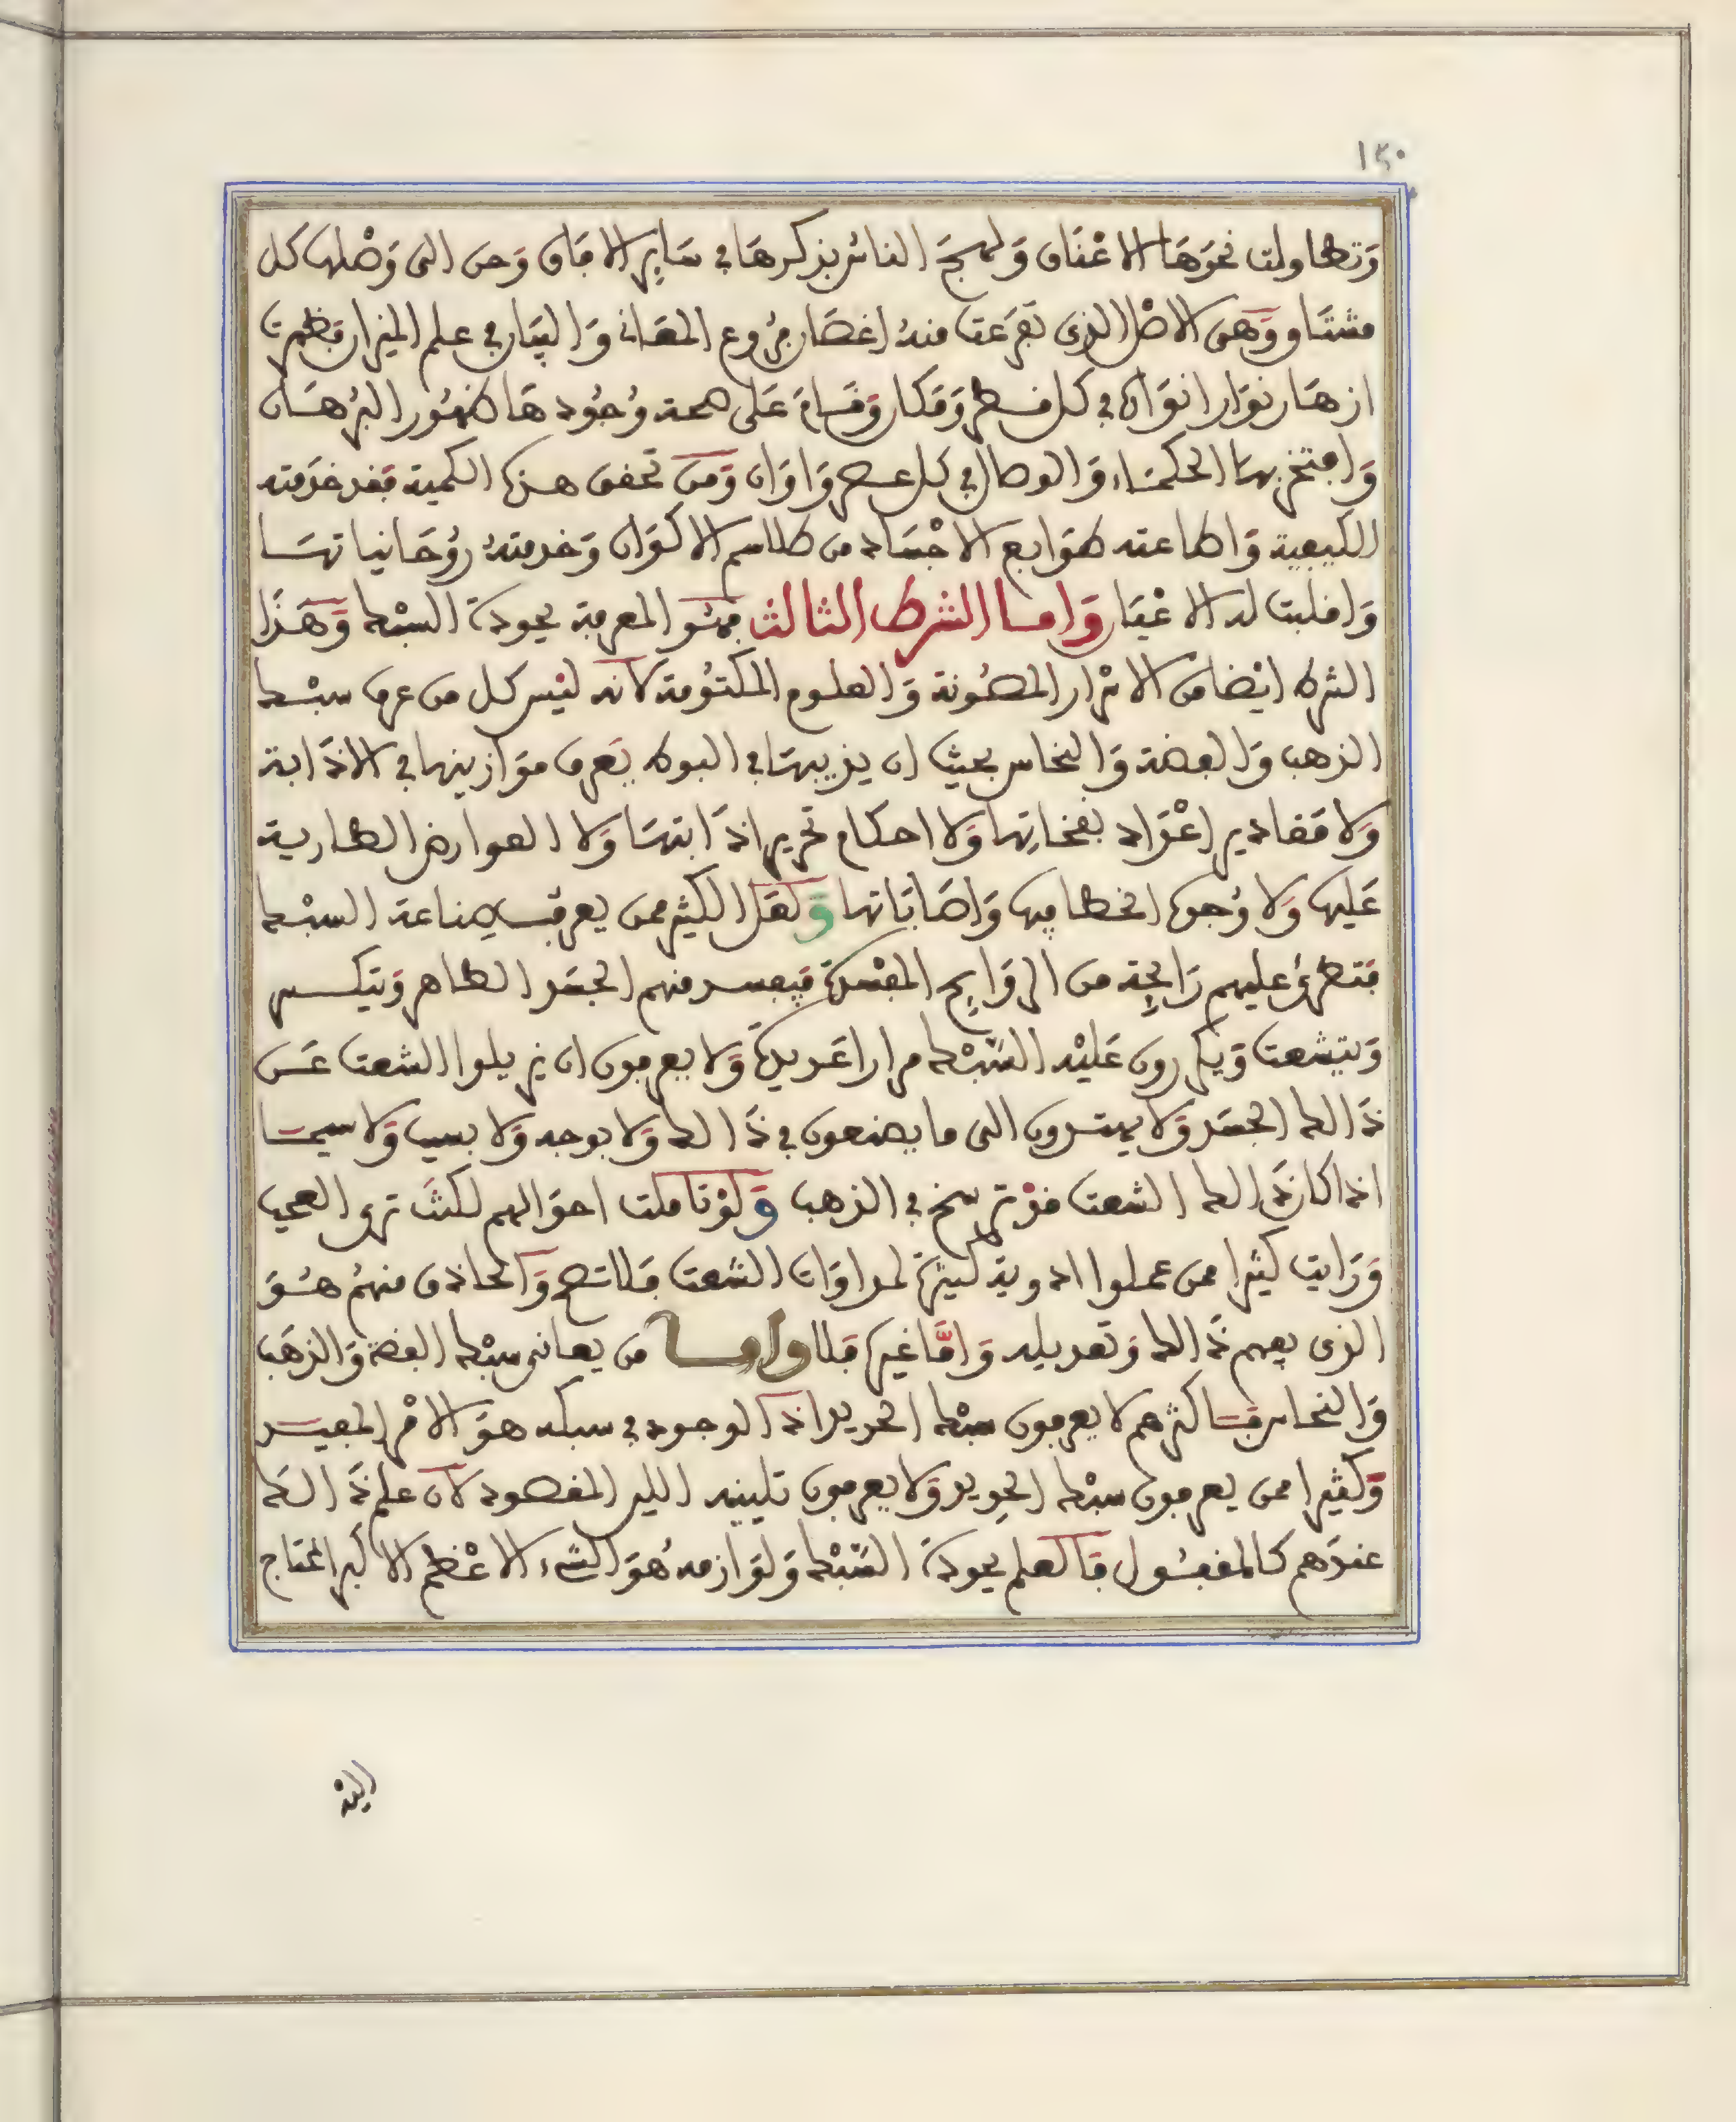 ١٤٠
وَتطاولت نحوَهَا الاعْنَاق وَلهجَ الناسُ بذكرهَا في سَايِر الافاق وَحن الى وَصْلها كل
مشتَاق وَهى الاصْل الذي تفرعَت منهُ اغصَان فرُوع المعَاني وَالبيَان في علم الميزان فظهرت
ازهَار نوَار انوَاره في كل قطر وَمَكان وَقَام عَلى صحة وُجُودهَا ظهُور البُرهَان
وَافتخر بهَا الحكمَاء وَالوصال في كل عصر وَاوَان وَمن تحقق هذه الكمية فقد خدَمته
الكيفية وَاطاعته طوَابع الاجْسَاد من طلاسم الاكوَان وَخدمتهُ رُوحَانياتهَا
وَاقلبت له الاعْيَان وَامَا الشرط الثالث فهُو المعرفة بجودة السبْك وَهَذَا
الشرط ايْضا من الاسْرار المصُونة وَالعلوم المكتوُمة لانه ليْس كل من عرف سبْك
الذهب وَالفضة وَالنحاس بحيث ان يذيبهَا في البوط يَعرف مَوَازينها في الاذَابة
وَلا مَقادير اعْوَاد نفخاتِها وَلا احكام تحرير اذَابتهَا وَلا العوارض الطارية
عَليها وَلا وُجوه الخطا فيها وَاصَابَاتها وَلعَل الكثير ممن يعرف صناعة السبْك
فتطرؤ عليهم رَايحِة من الروَايح المفسْدة فيفسد منهم الجسَد الطاهر وَيتكسر
وَيتشعث وَيكررون عَليْه السَّبْك مرارا عَديدة وَلا يعرفون ان يزيلوا الشعث عَن
ذَالك الجسَد وَلا يهتدون الى ما يصنعون في ذَالك وَلا بوجه وَلا بسبب وَلا سيمَا
اذا كان ذَالك الشعث قدْ ترسخ في الذهب وَلوْ تاملت احوَالهم لكنتَ ترى العجب
وَرَايت كثيرا ممن عملوا ادوية كثيرة لمداوَات الشعث فلا تصح وَالحاذق منهُم هُوَ
الذى يفهم ذَالك وَتعديله وَامَّا غيره فلا وامــا من يعانى سبْك الفضة وَالذهَب
وَالنحاس فاكثرهم لا يعرفون سبْك الحديد اذ الوجود في سبكه هوَ الامْر المفيد
وَكثيرا ممن يعرفون سبْك الحدِيد وَلا يعرفون تليينه اللين المقصود لان علم ذَالك
عندَهم كالمقفُول فالعلم بجودة السَّبْك وَلوَازمه هُوَ الشيء الاعْظم الاكبر المحتاج
اليْه